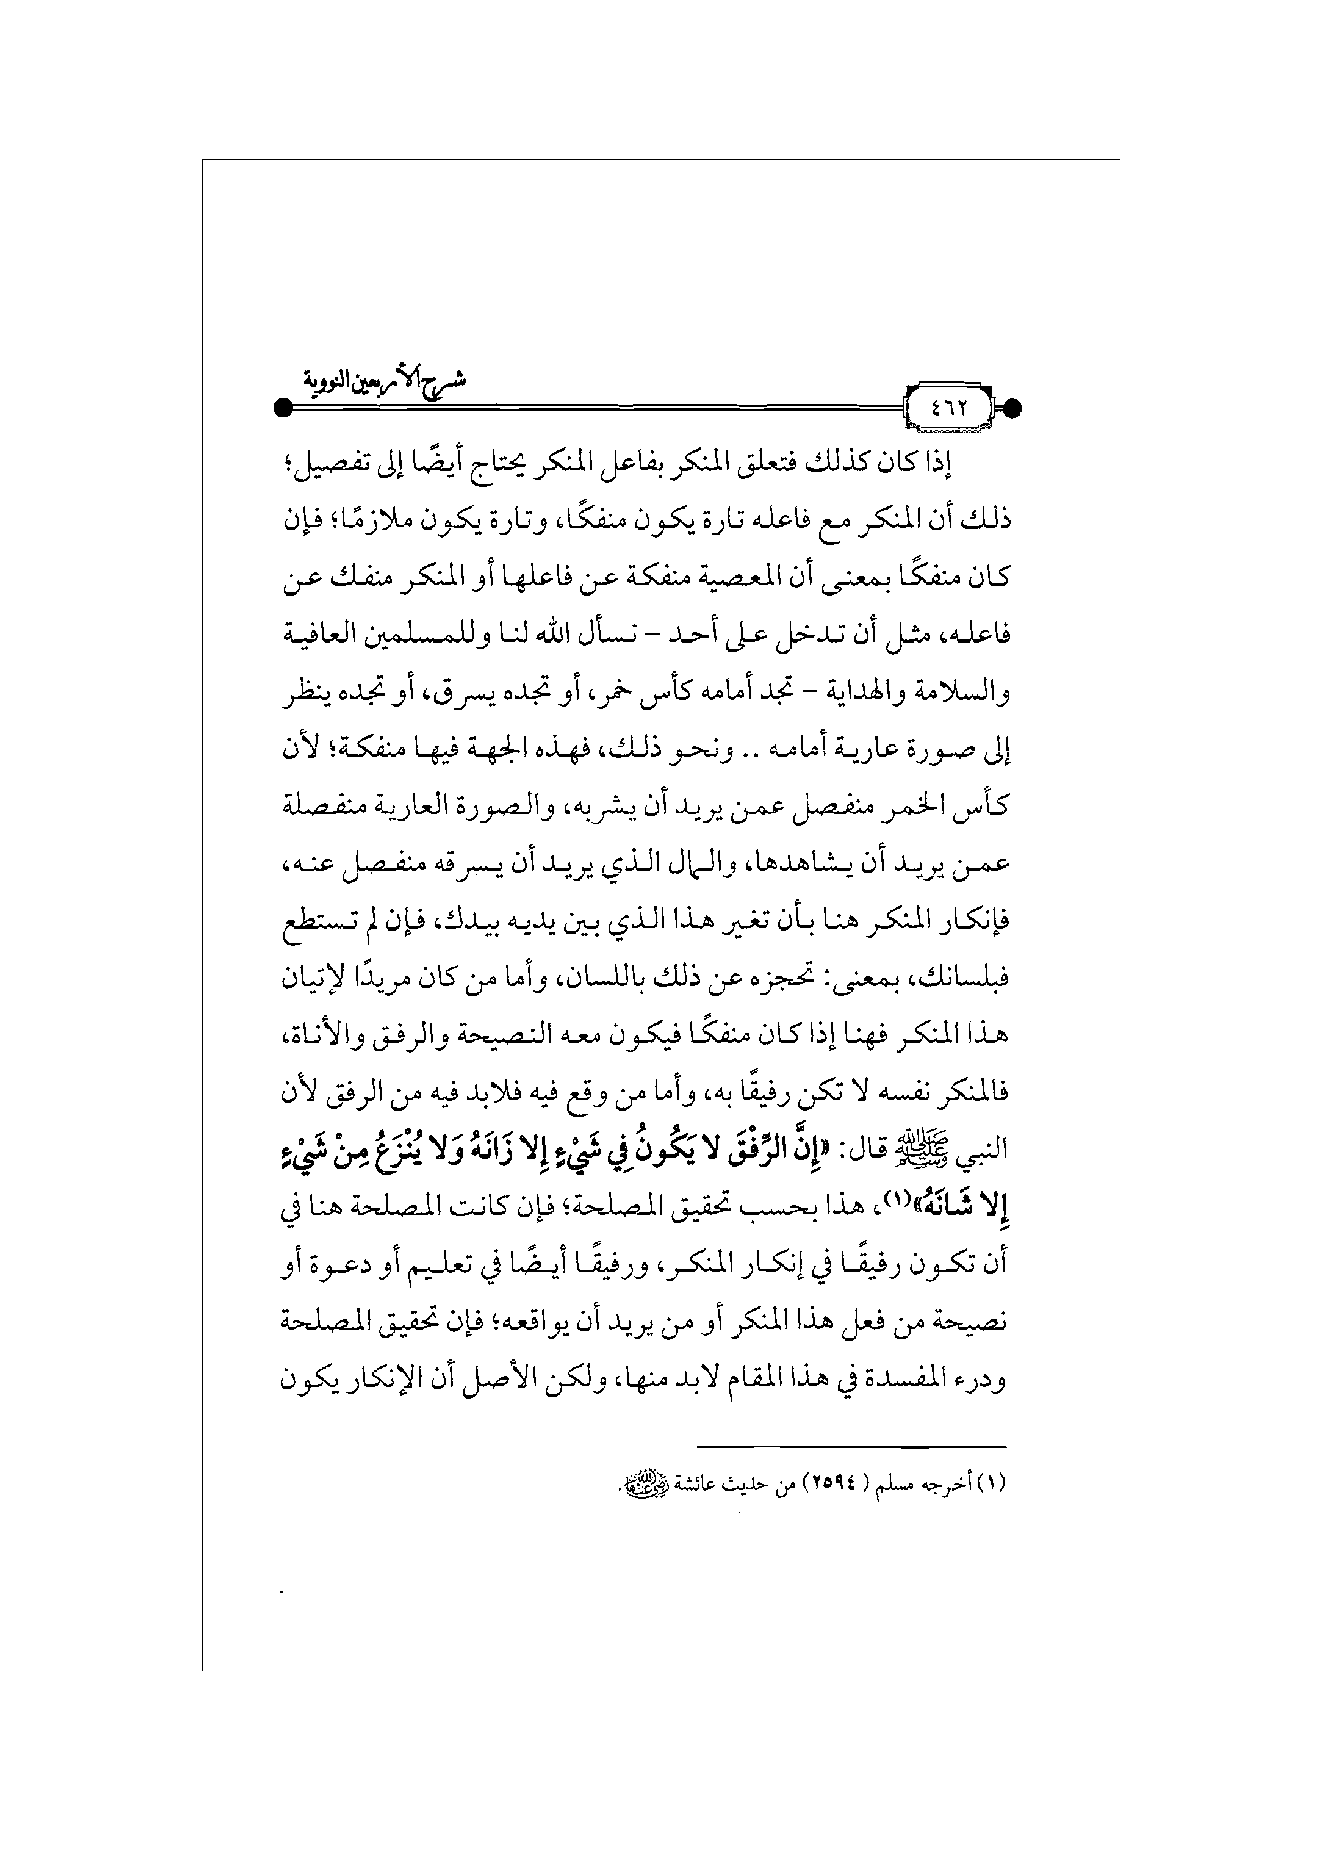 شرح الأربعين النووية
٤٦٢
إذا كان كذلك فتعلق المنكر بفاعل المنكر يحتاج أيضًا إلى تفصيل؛
ذلك أن المنكر مع فاعله تارة يكون منفكًا، وتارة يكون ملازمًا؛ فإن
كان منفكًا بمعنى أن المعصية منفكة عن فاعلها أو المنكر منفك عن
فاعله، مثل أن تدخل على أحد – نسأل الله لنا وللمسلمين العافية
والسلامة والهداية – تجد أمامه كأس خمر، أو تجده يسرق، أو تجده ينظر
إلى صورة عارية أمامه .. ونحو ذلك، فهذه الجهة فيها منفكة؛ لأن
كأس الخمر منفصل عمن يريد أن يشربه، والصورة العارية منفصلة
عمن يريد أن يشاهدها، والمال الذي يريد أن يسرقه منفصل عنه،
فإنكار المنكر هنا بأن تغير هذا الذي بين يديه بيدك، فإن لم تستطع
فبلسانك، بمعنى: تحجزه عن ذلك باللسان، وأما من كان مريدًا لإتيان
هذا المنكر فهنا إذا كان منفكًا فيكون معه النصيحة والرفق والأناة،
فالمنكر نفسه لا تكن رفيقًا به، وأما من وقع فيه فلابد فيه من الرفق لأن
النبي ﷺ قال: «إِنَّ الرِّفْقَ لا يَكُونُ فِي شَيْءٍ إِلا زَانَهُ وَلا يُنْزَعُ مِنْ شَيْءٍ
إِلا شَانَهُ»(١)، هذا بحسب تحقيق المصلحة؛ فإن كانت المصلحة هنا في
أن تكون رفيقًا في إنكار المنكر، ورفيقًا أيضًا في تعليم أو دعوة أو
نصيحة من فعل هذا المنكر أو من يريد أن يواقعه؛ فإن تحقيق المصلحة
ودرء المفسدة في هذا المقام لابد منها، ولكن الأصل أن الإنكار يكون
(١) أخرجه مسلم ( ٢٥٩٤) من حديث عائشة رضي الله عنها.